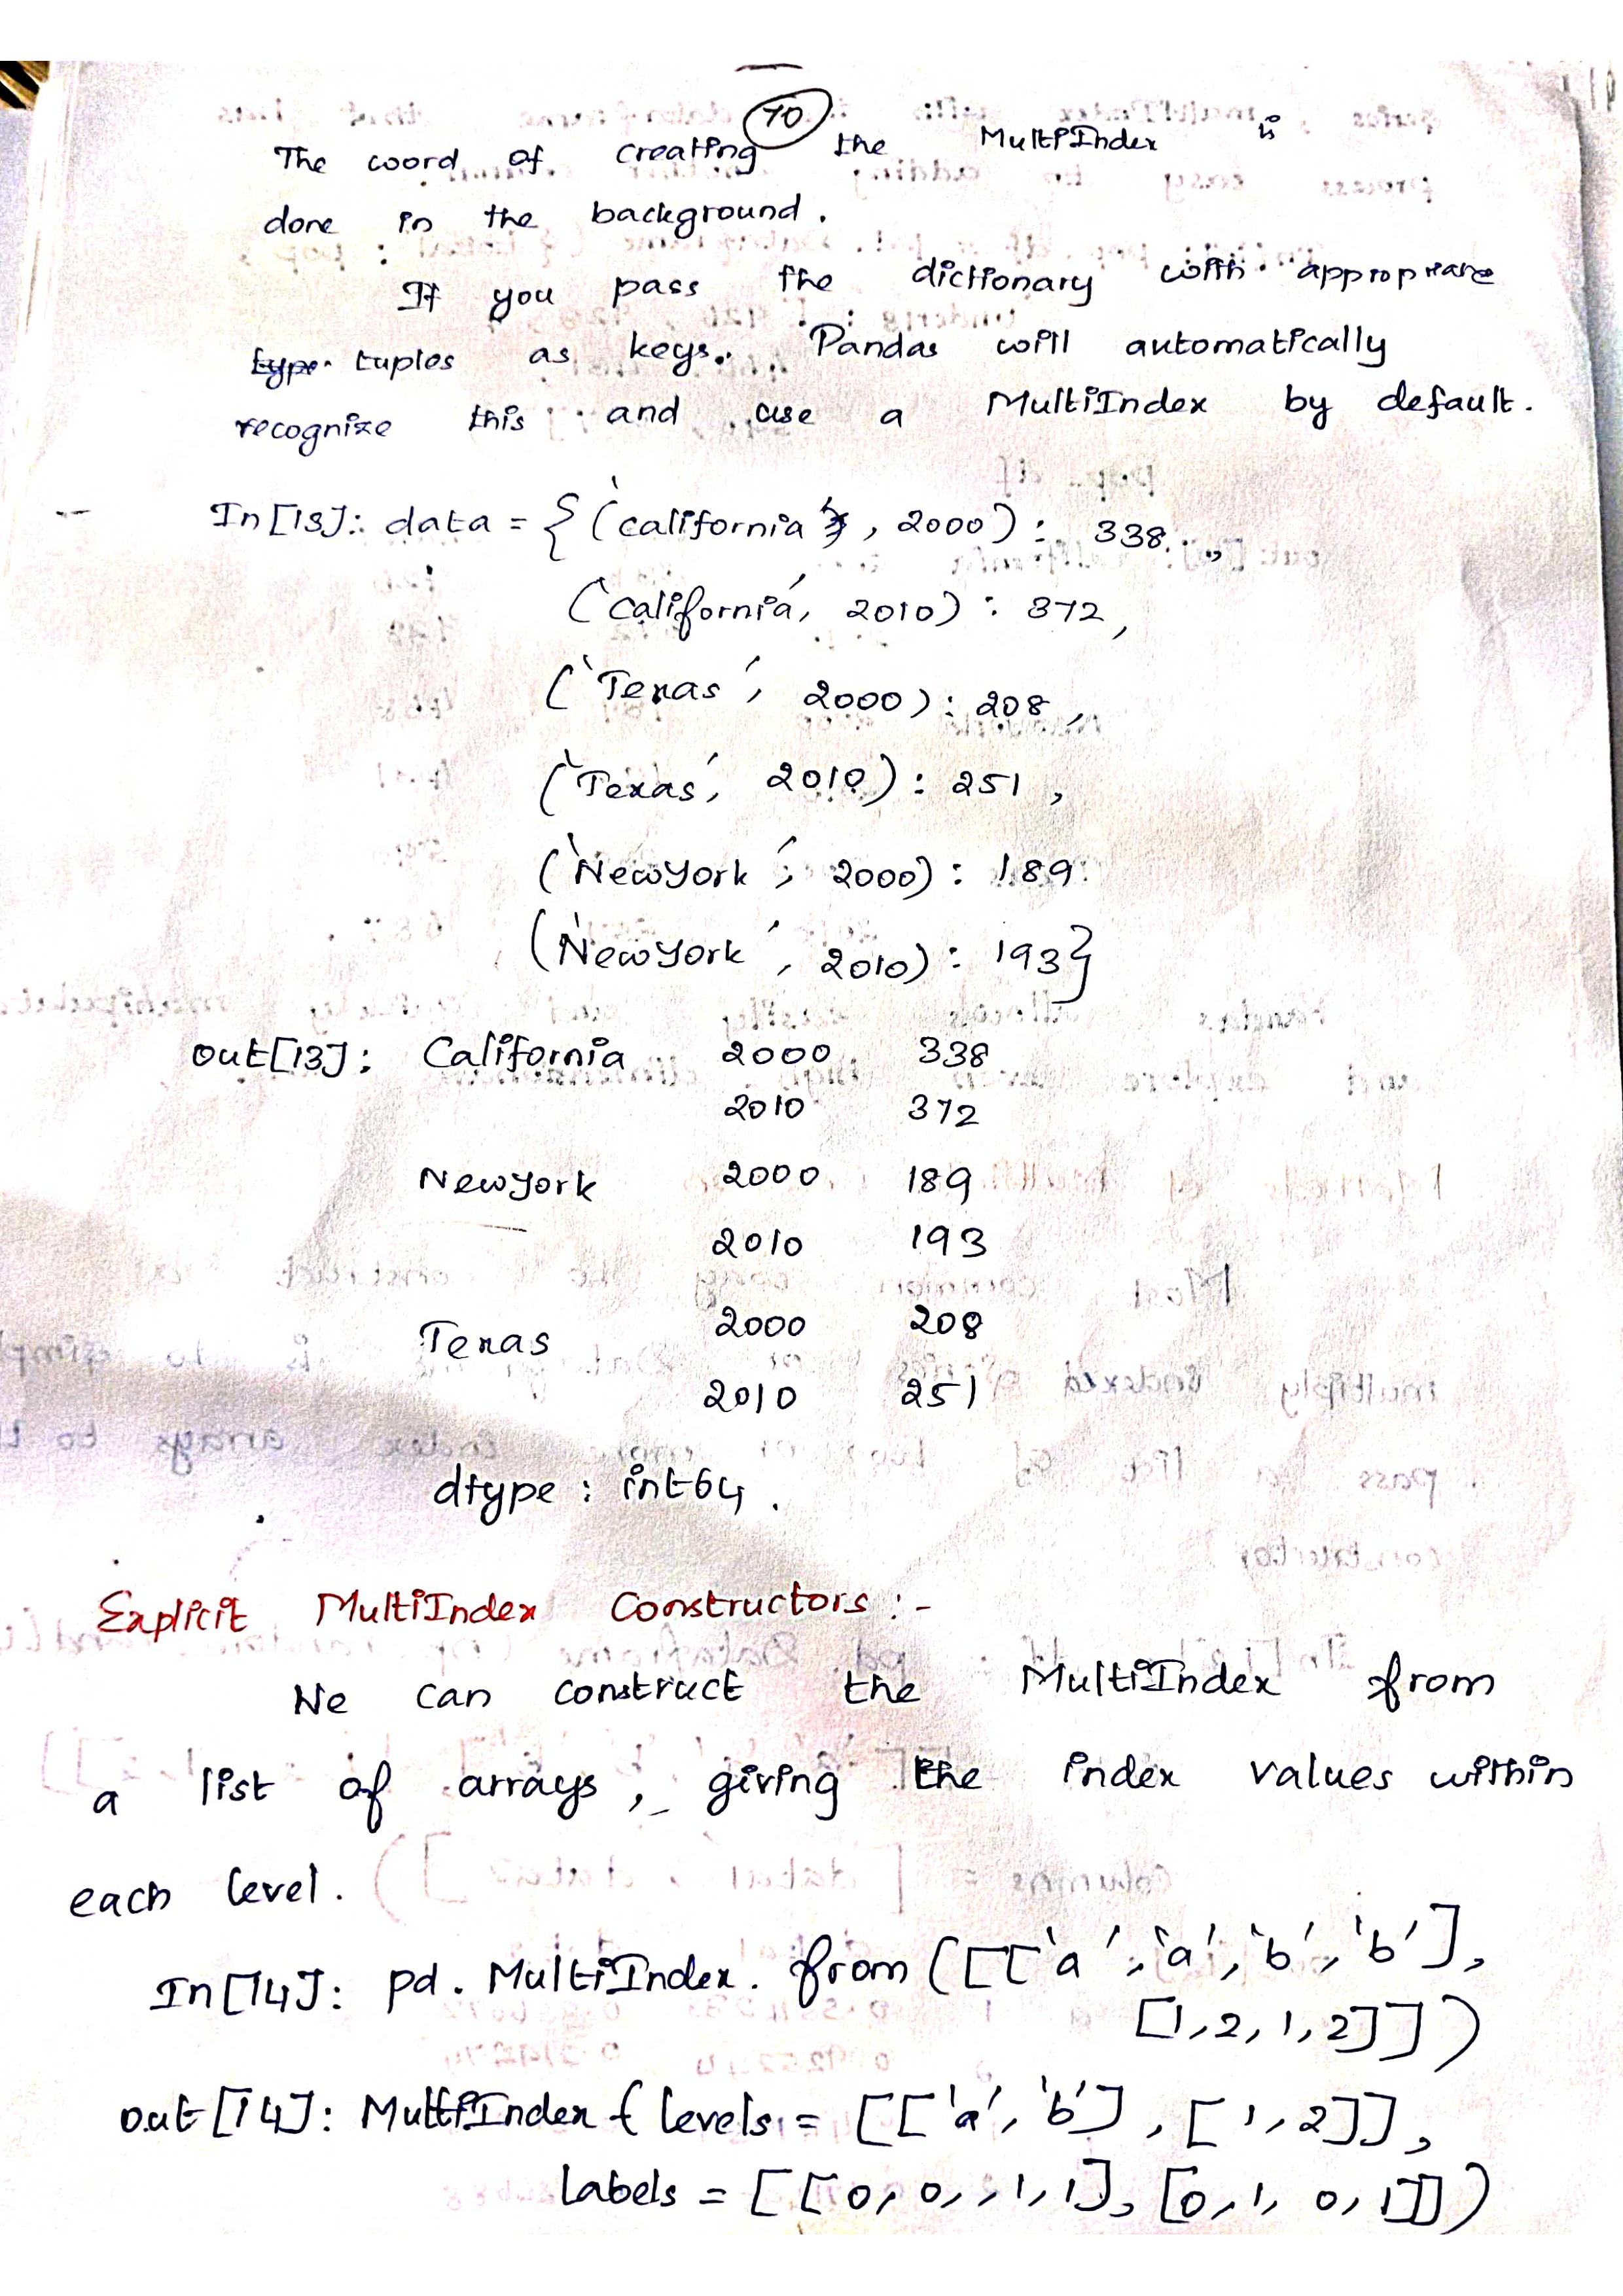 70
The word of creating the MultiIndex is
done in the background.
If you pass the dictionary with appropriate
type tuples as keys. Pandas will automatically
recognize this and use a MultiIndex by default.
In[13]: data = {('california', 2000): 338,
('california', 2010): 372,
('Texas', 2000): 208,
('Texas', 2010): 251,
('Newyork', 2000): 189
('Newyork', 2010): 193}
out[13]: California 2000 338
2010 372
Newyork 2000 189
2010 193
Texas 2000 208
2010 251
dtype: int64.
Explicit MultiIndex Constructors:-
We can construct the MultiIndex from
a list of arrays, giving the index values within
each level.
In[14]: pd.MultiIndex.from([['a','a','b','b'],
[1,2,1,2]])
out[14]: MultiIndex(levels=[['a','b'],[1,2]],
labels=[[0,0,1,1],[0,1,0,1]])